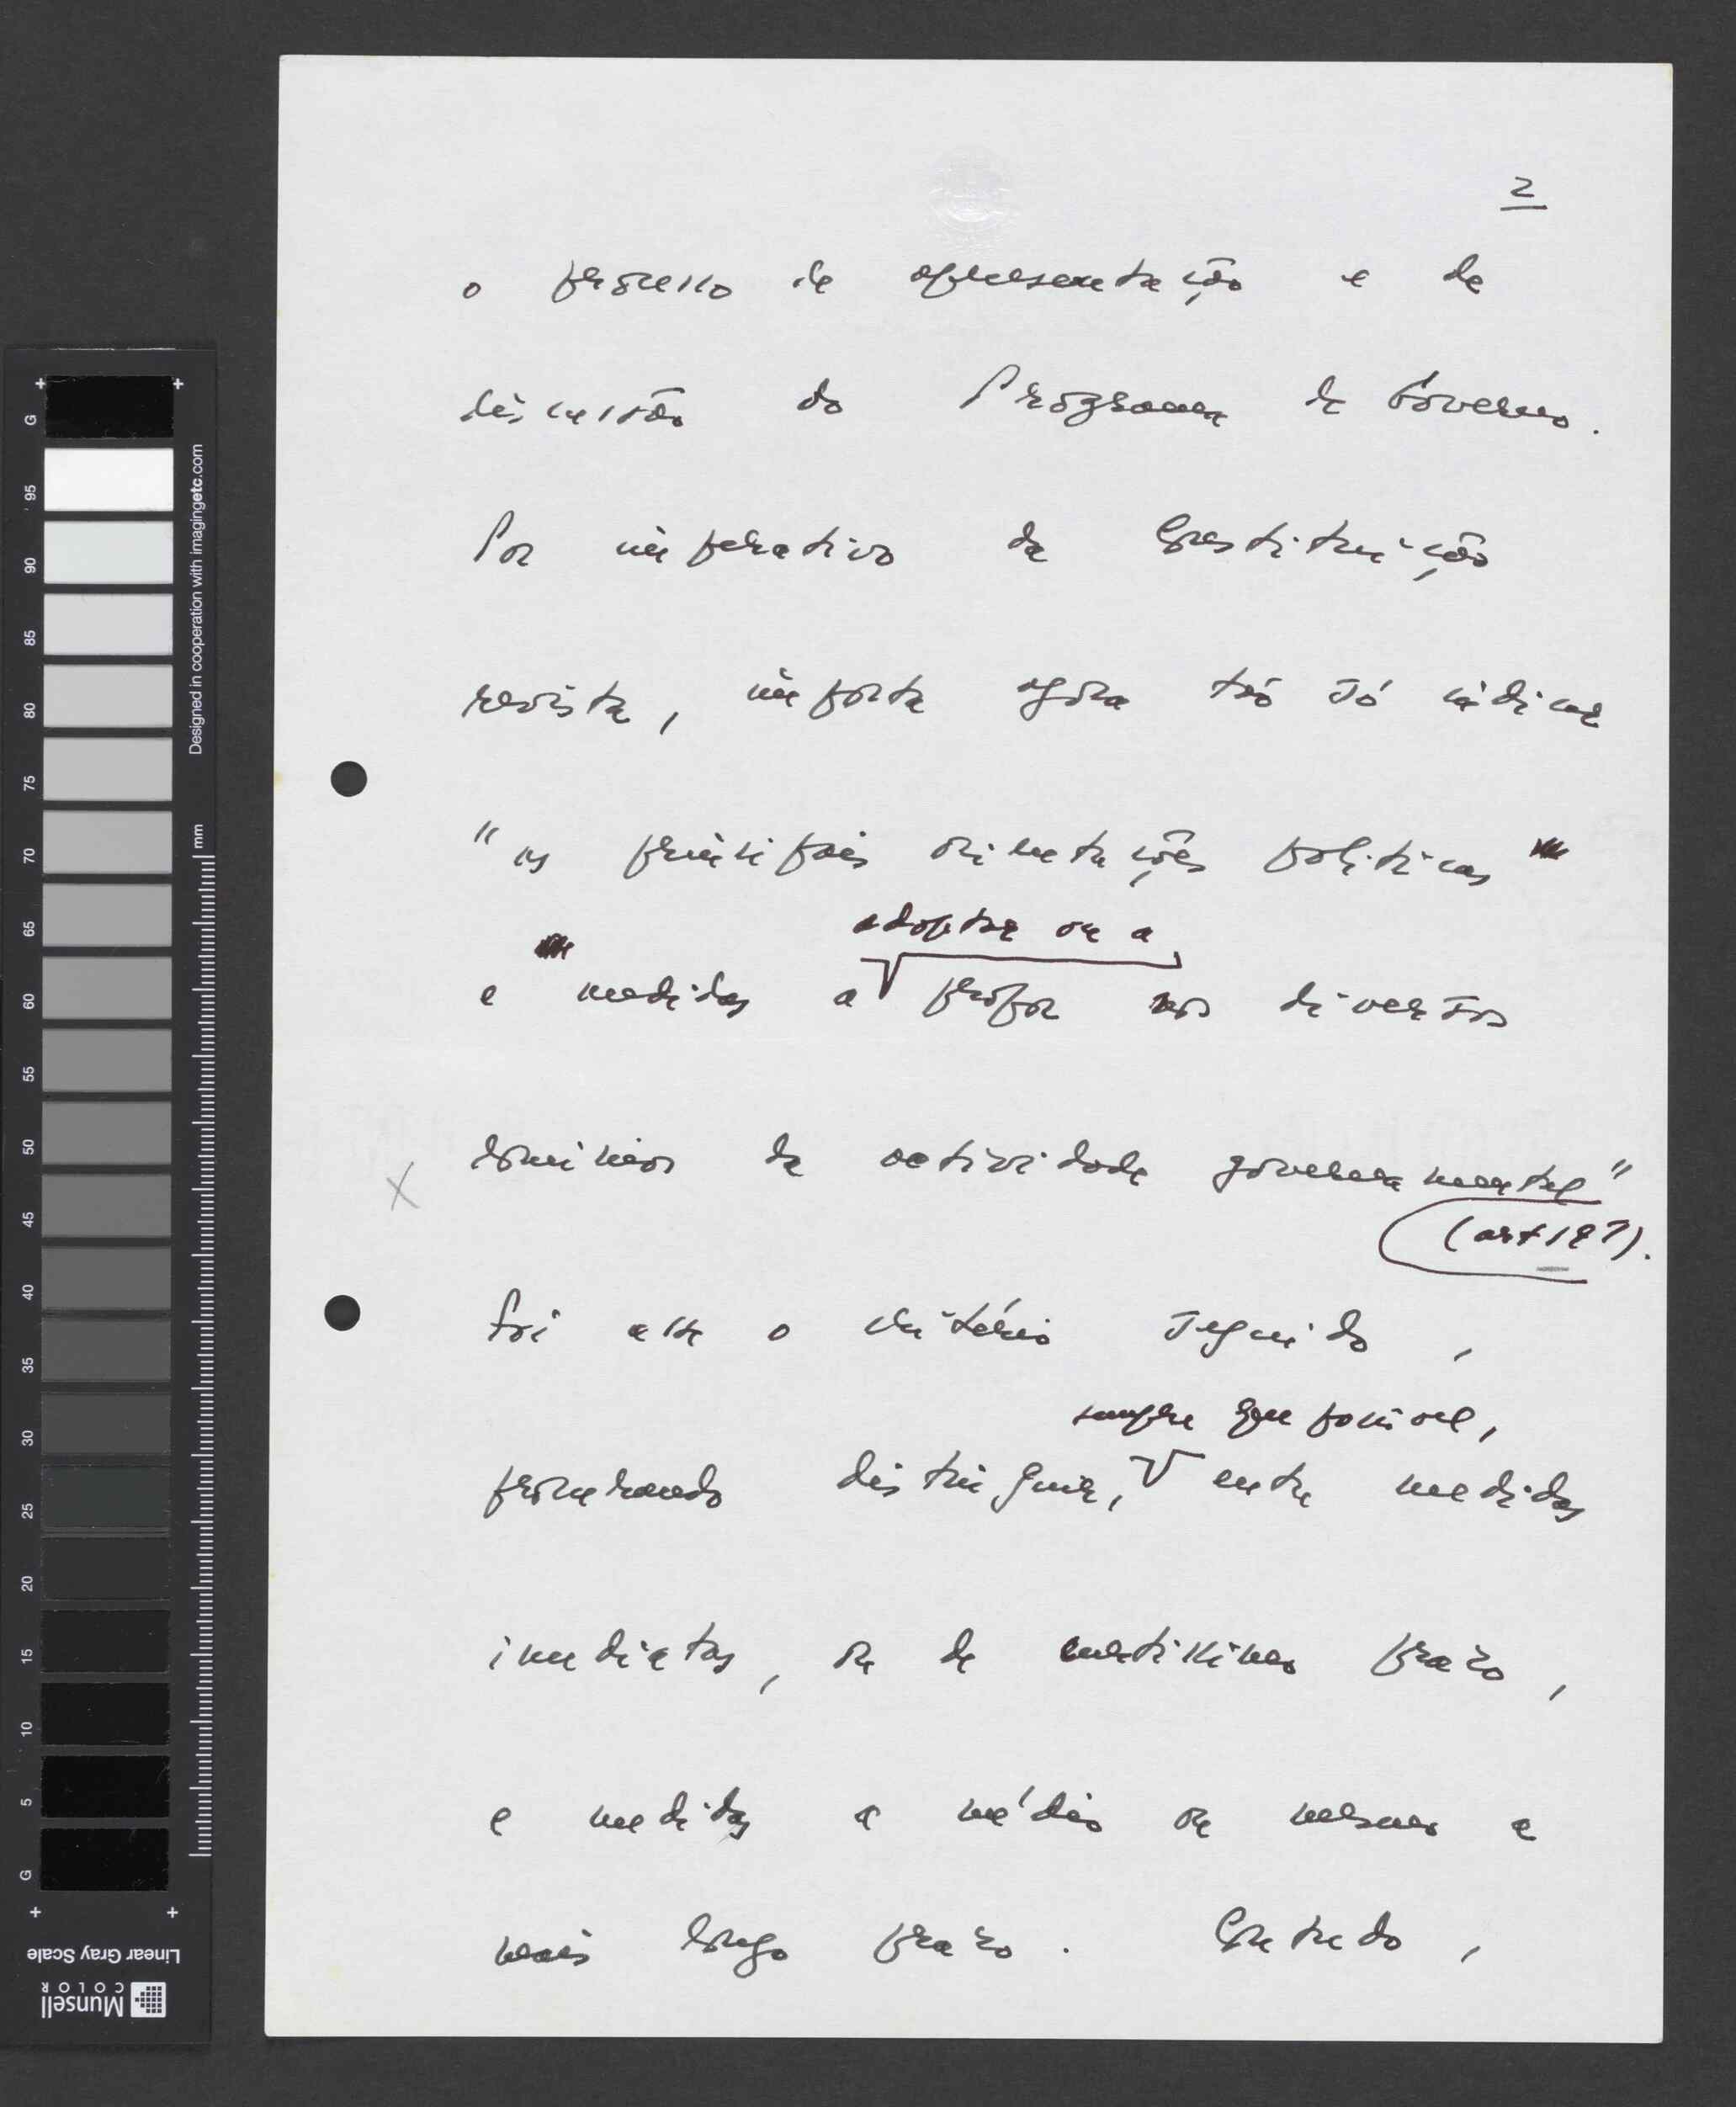 2
o processo de apresentação e de
discussão do Programa de Governo.
Por imperativo da Constituição
revista, importa agora tão só indicar
"as principais orientações políticas
adoptar ou a
e medidas a propor nos diversos
domínios da actividade governamental"
(art 191).
Foi esse o critério seguido,
sempre que possível,
procurando distinguir, entre medidas
imediatas, ou de curtíssimo prazo,
e medidas a médio ou mesmo a
mais longo prazo. Contudo,
G 95 90 85 80 75 70 65 60 55 50 45 40 35 30 25 20 15 10 5 G
Designed in cooperation with imagingetc.com
mm
Linear Gray Scale
Munsell
COLOR